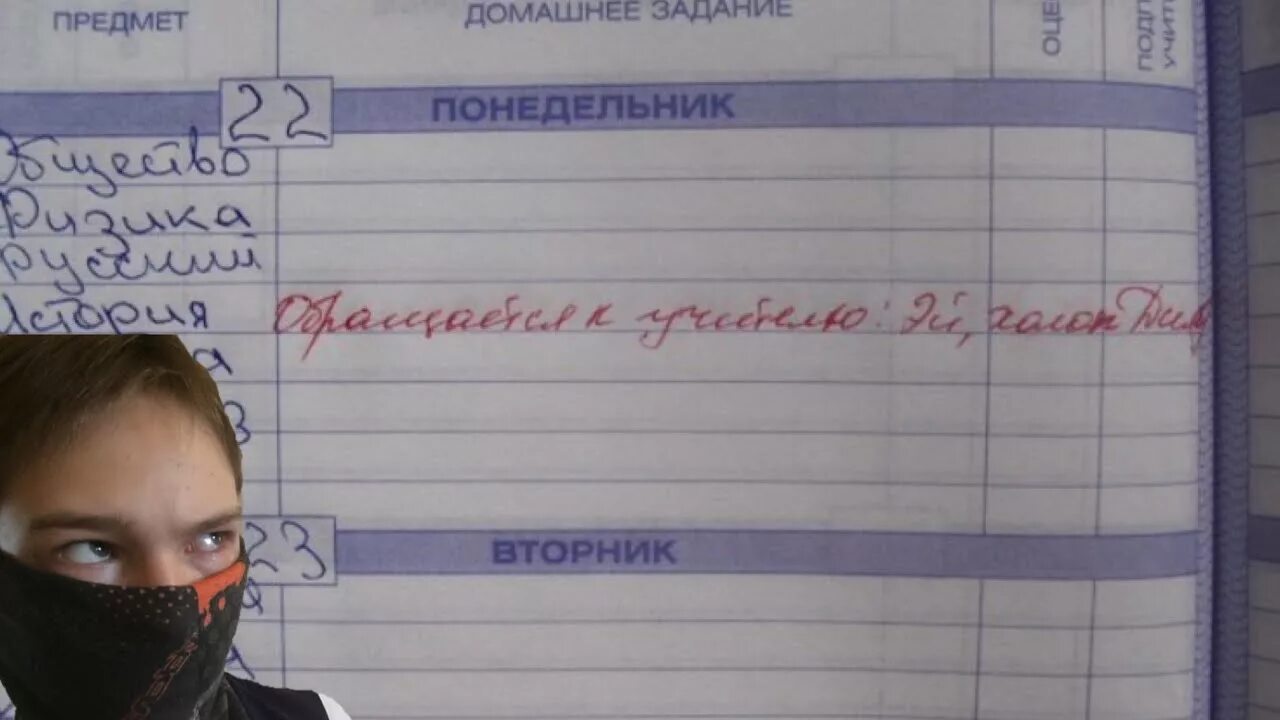 ПРЕДМЕТ ДОМАШНЕЕ ЗАДАНИЕ
22 ПОНЕДЕЛЬНИК
Общество
Физика
Русский
История Обращается к учителю: Эй, холоп
23 ВТОРНИК